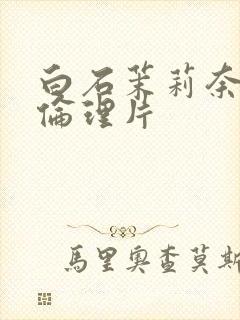 白石茉莉奈
倫理片
馬里奧查莫斯